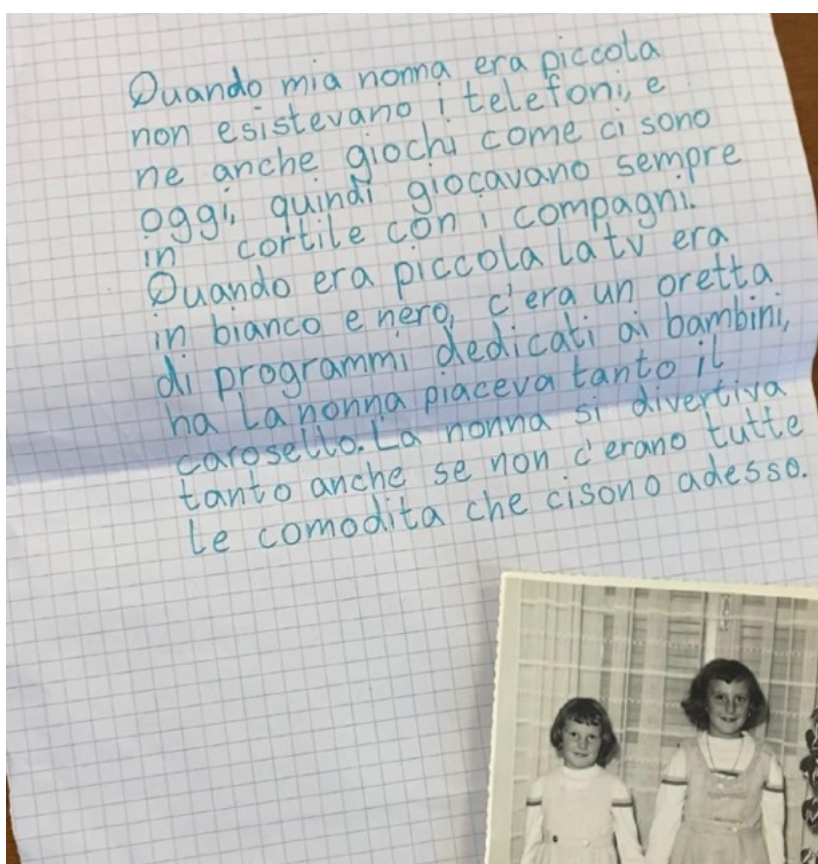 Quando mia nonna era piccola
non esistevano i telefoni, e
ne anche giochi come ci sono
oggi, quindi giocavano sempre
in cortile con i compagni.
Quando era piccola la tv era
in bianco e nero, c'era un oretta
di programmi dedicati ai bambini,
ha la nonna piaceva tanto il
carosello. La nonna si divertiva
tanto anche se non c'erano tutte
le comodita che cisono adesso.